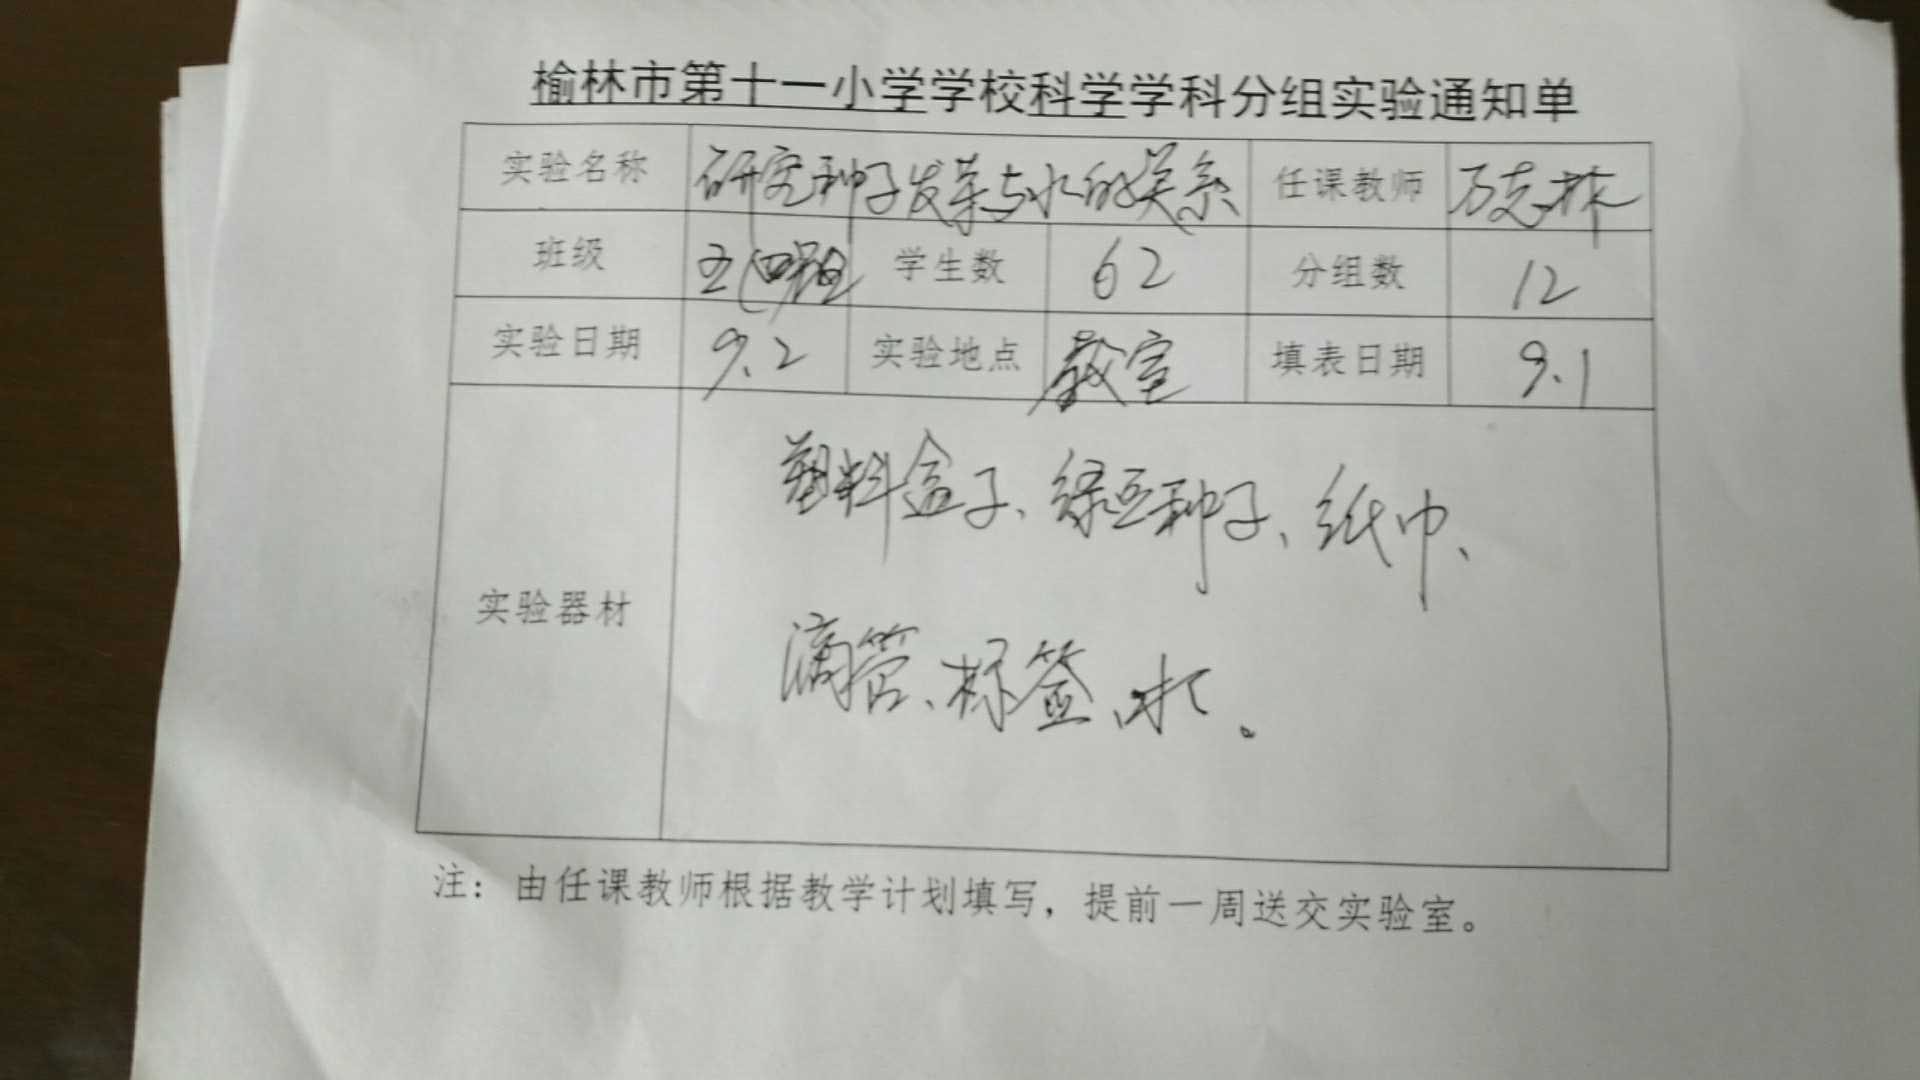 榆林市第十一小学学校科学学科分组实验通知单
实验名称 研究种子发芽与水的关系 任课教师 万志林
班级 五(四) 学生数 62 分组数 12
实验日期 9.2 实验地点 教室 填表日期 9.1
塑料盒子、绿豆种子、纸巾、
实验器材
滴管、标签、水。
注：由任课教师根据教学计划填写，提前一周送交实验室。